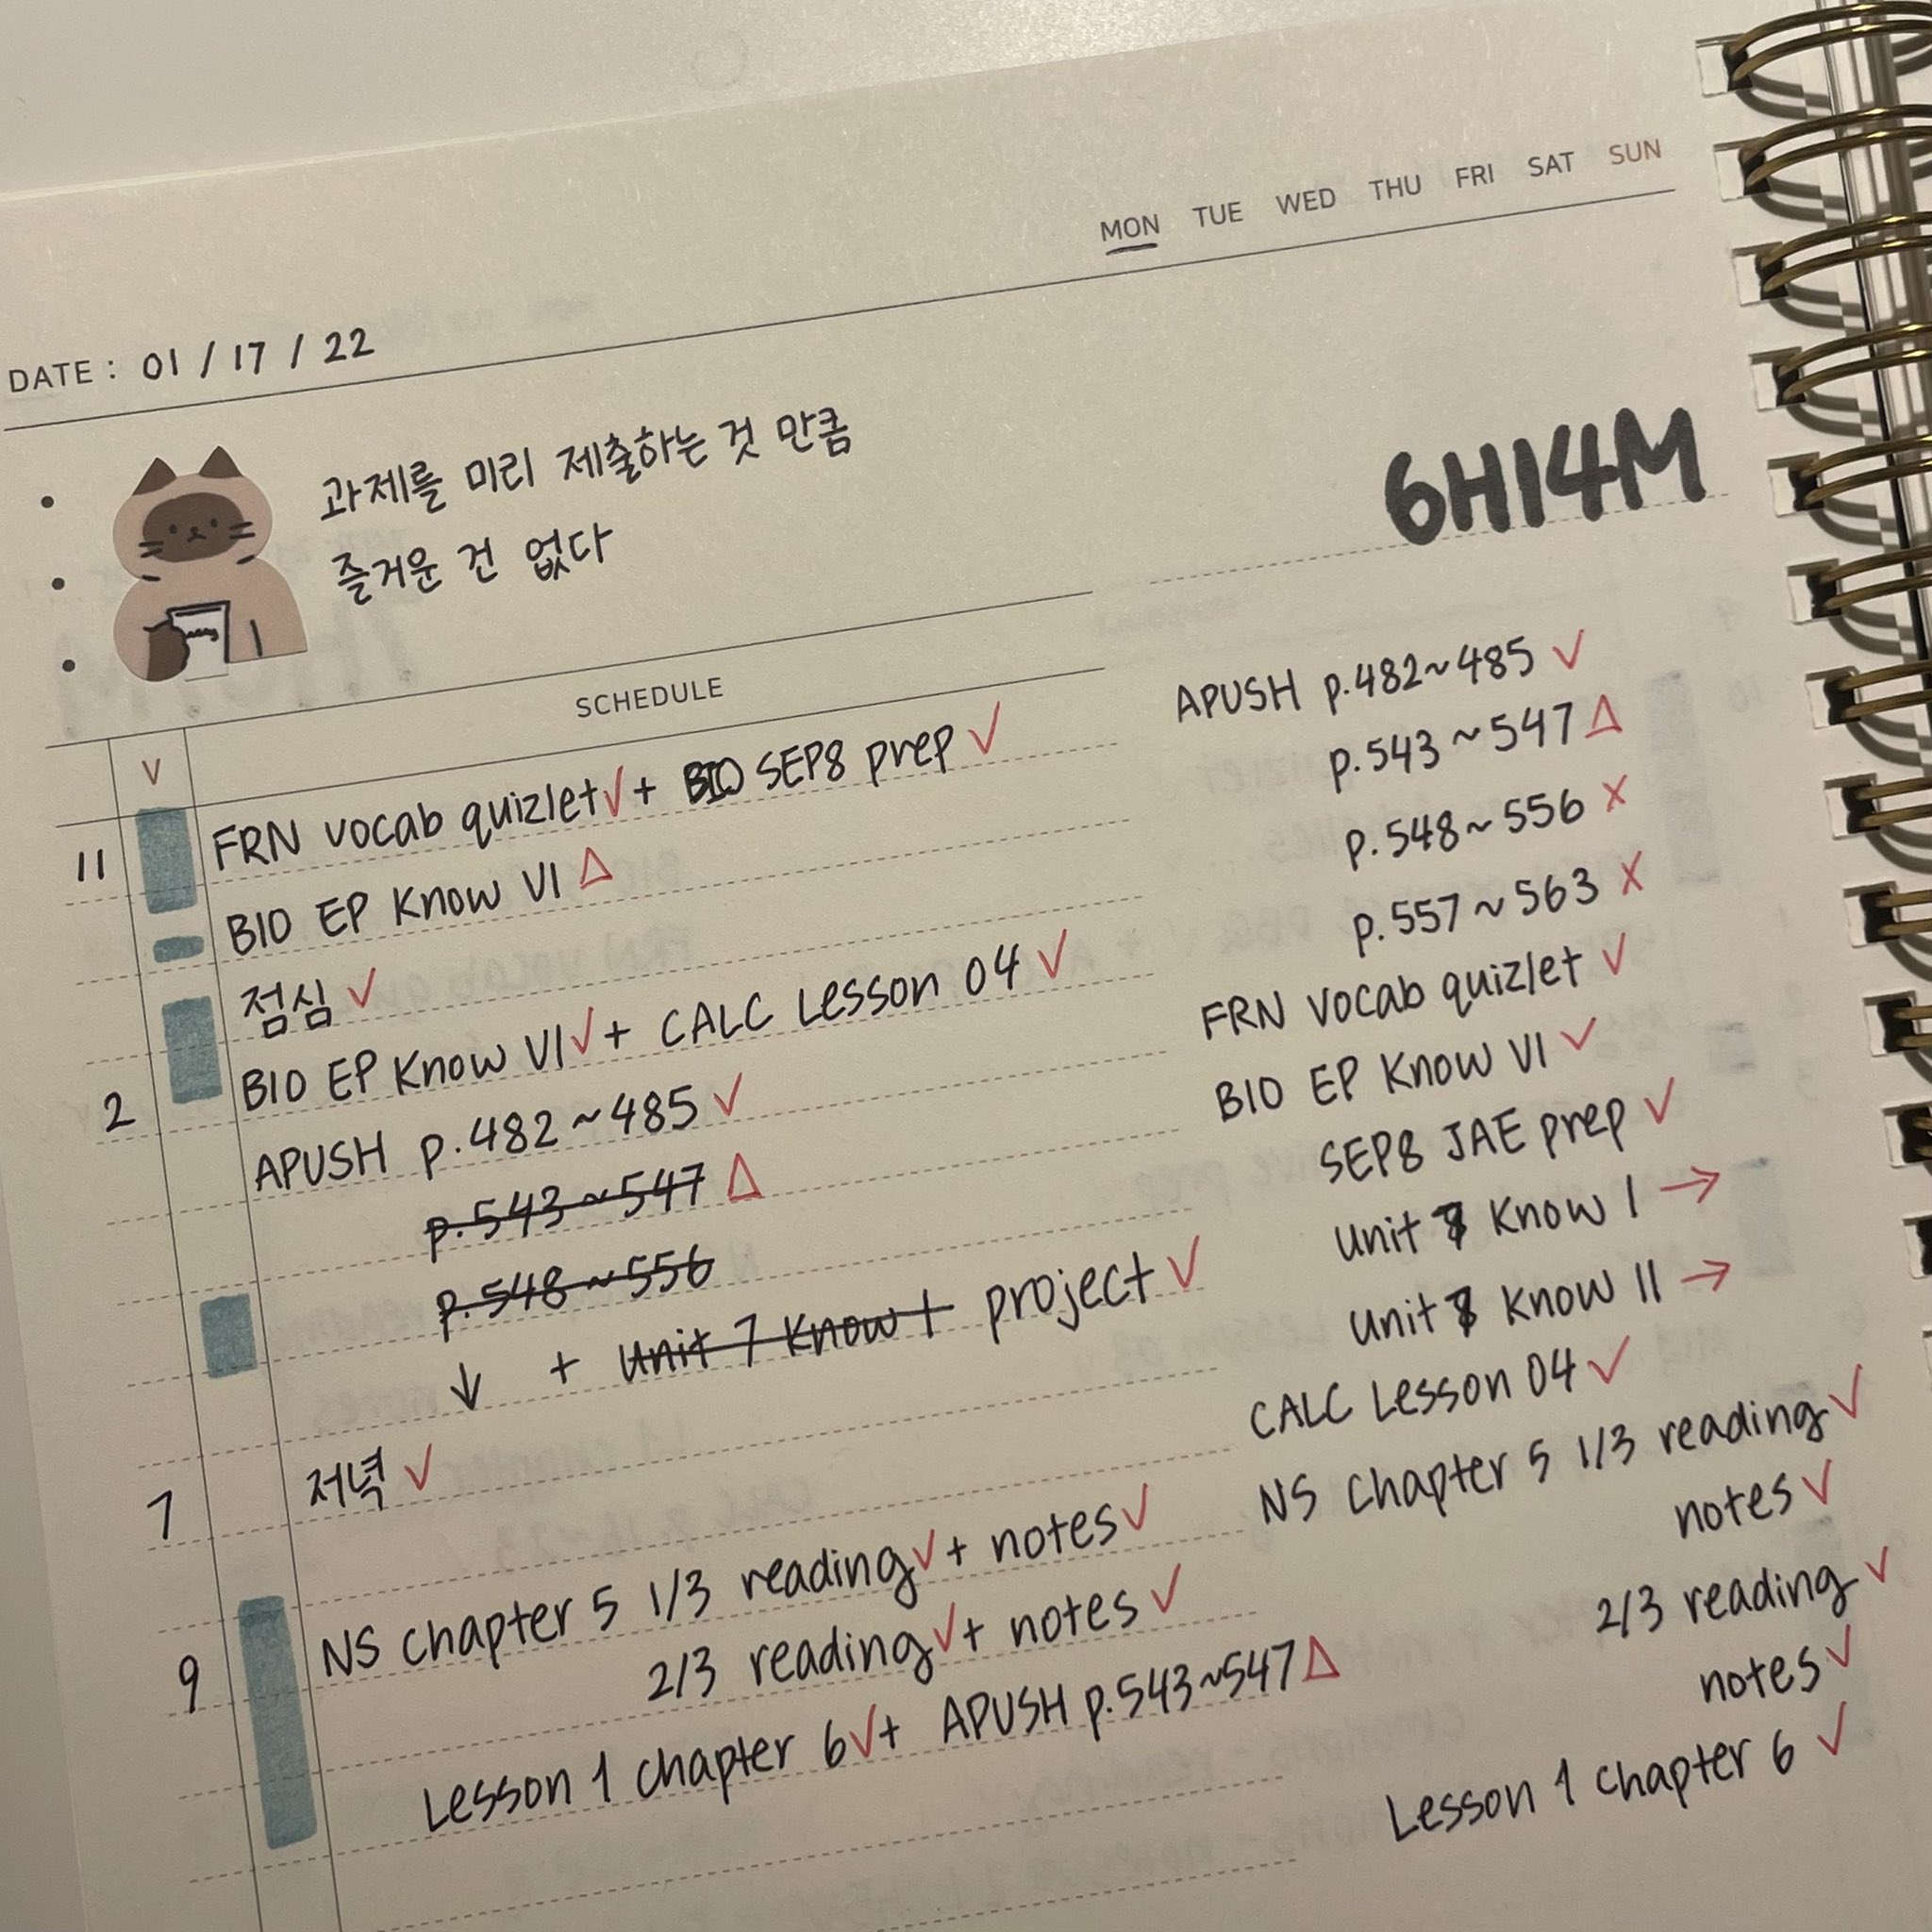 MON TUE WED THU FRI SAT SUN
DATE : 01 / 17 / 22
과제를 미리 제출하는 것 만큼
즐거운 건 없다
6H14M
SCHEDULE
V
FRN vocab quizlet✓+ BIO SEP8 prep ✓
11
BIO EP Know VI △
점심 ✓
BIO EP Know VI✓+ CALC Lesson 04 ✓
2
APUSH p.482~485 ✓
p.543~547 △
p.548~556
↓ + Unit 7 Know I project ✓
저녁 ✓
7
NS Chapter 5 1/3 reading✓+ notes✓
9
2/3 reading✓+ notes ✓
Lesson 1 Chapter 6✓+ APUSH p.543~547△
APUSH p.482~485 ✓
p.543~547△
p.548~556 X
p.557~563 X
FRN vocab quizlet ✓
BIO EP Know VI ✓
SEP8 JAE prep ✓
Unit Know I →
Unit Know II →
CALC Lesson 04 ✓
NS Chapter 5 1/3 reading✓
notes✓
2/3 reading ✓
notes✓
Lesson 1 Chapter 6 ✓